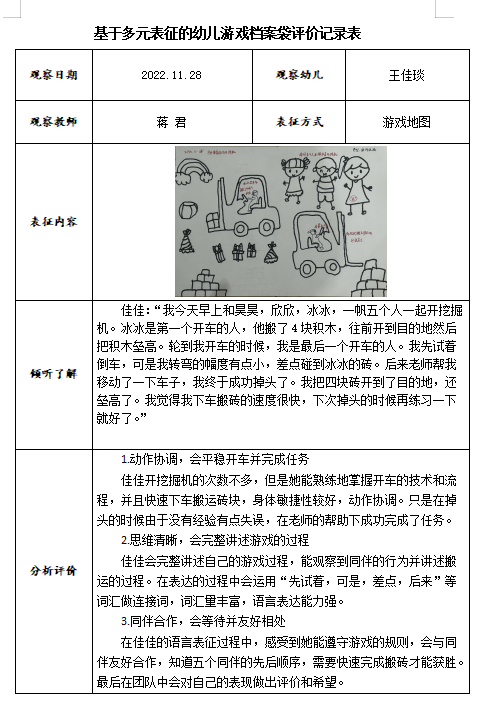 基于多元表征的幼儿游戏档案袋评价记录表
观察日期 2022.11.28 观察幼儿 王佳琰
观察教师 蒋 君 表征方式 游戏地图
表征内容
倾听了解
佳佳：“我今天早上和昊昊，欣欣，冰冰，一帆五个人一起开挖掘
机。冰冰是第一个开车的人，他搬了 4 块积木，往前开到目的地然后
把积木垒高。轮到我开车的时候，我是最后一个开车的人。我先试着
倒车，可是我转弯的幅度有点小，差点碰到冰冰的砖。后来老师帮我
移动了一下车子，我终于成功掉头了。我把四块砖开到了目的地，还
垒高了。我觉得我下车搬砖的速度很快，下次掉头的时候再练习一下
就好了。”
分析评价
1.动作协调，会平稳开车并完成任务
佳佳开挖掘机的次数不多，但是她能熟练地掌握开车的技术和流
程，并且快速下车搬运砖块，身体敏捷性较好，动作协调。只是在掉
头的时候由于没有经验有点失误，在老师的帮助下成功完成了任务。
2.思维清晰，会完整讲述游戏的过程
佳佳会完整讲述自己的游戏过程，能观察到同伴的行为并讲述搬
运的过程。在表达的过程中会运用“先试着，可是，差点，后来”等
词汇做连接词，词汇量丰富，语言表达能力强。
3.同伴合作，会等待并友好相处
在佳佳的语言表征过程中，感受到她能遵守游戏的规则，会与同
伴友好合作，知道五个同伴的先后顺序，需要快速完成搬砖才能获胜。
最后在团队中会对自己的表现做出评价和希望。